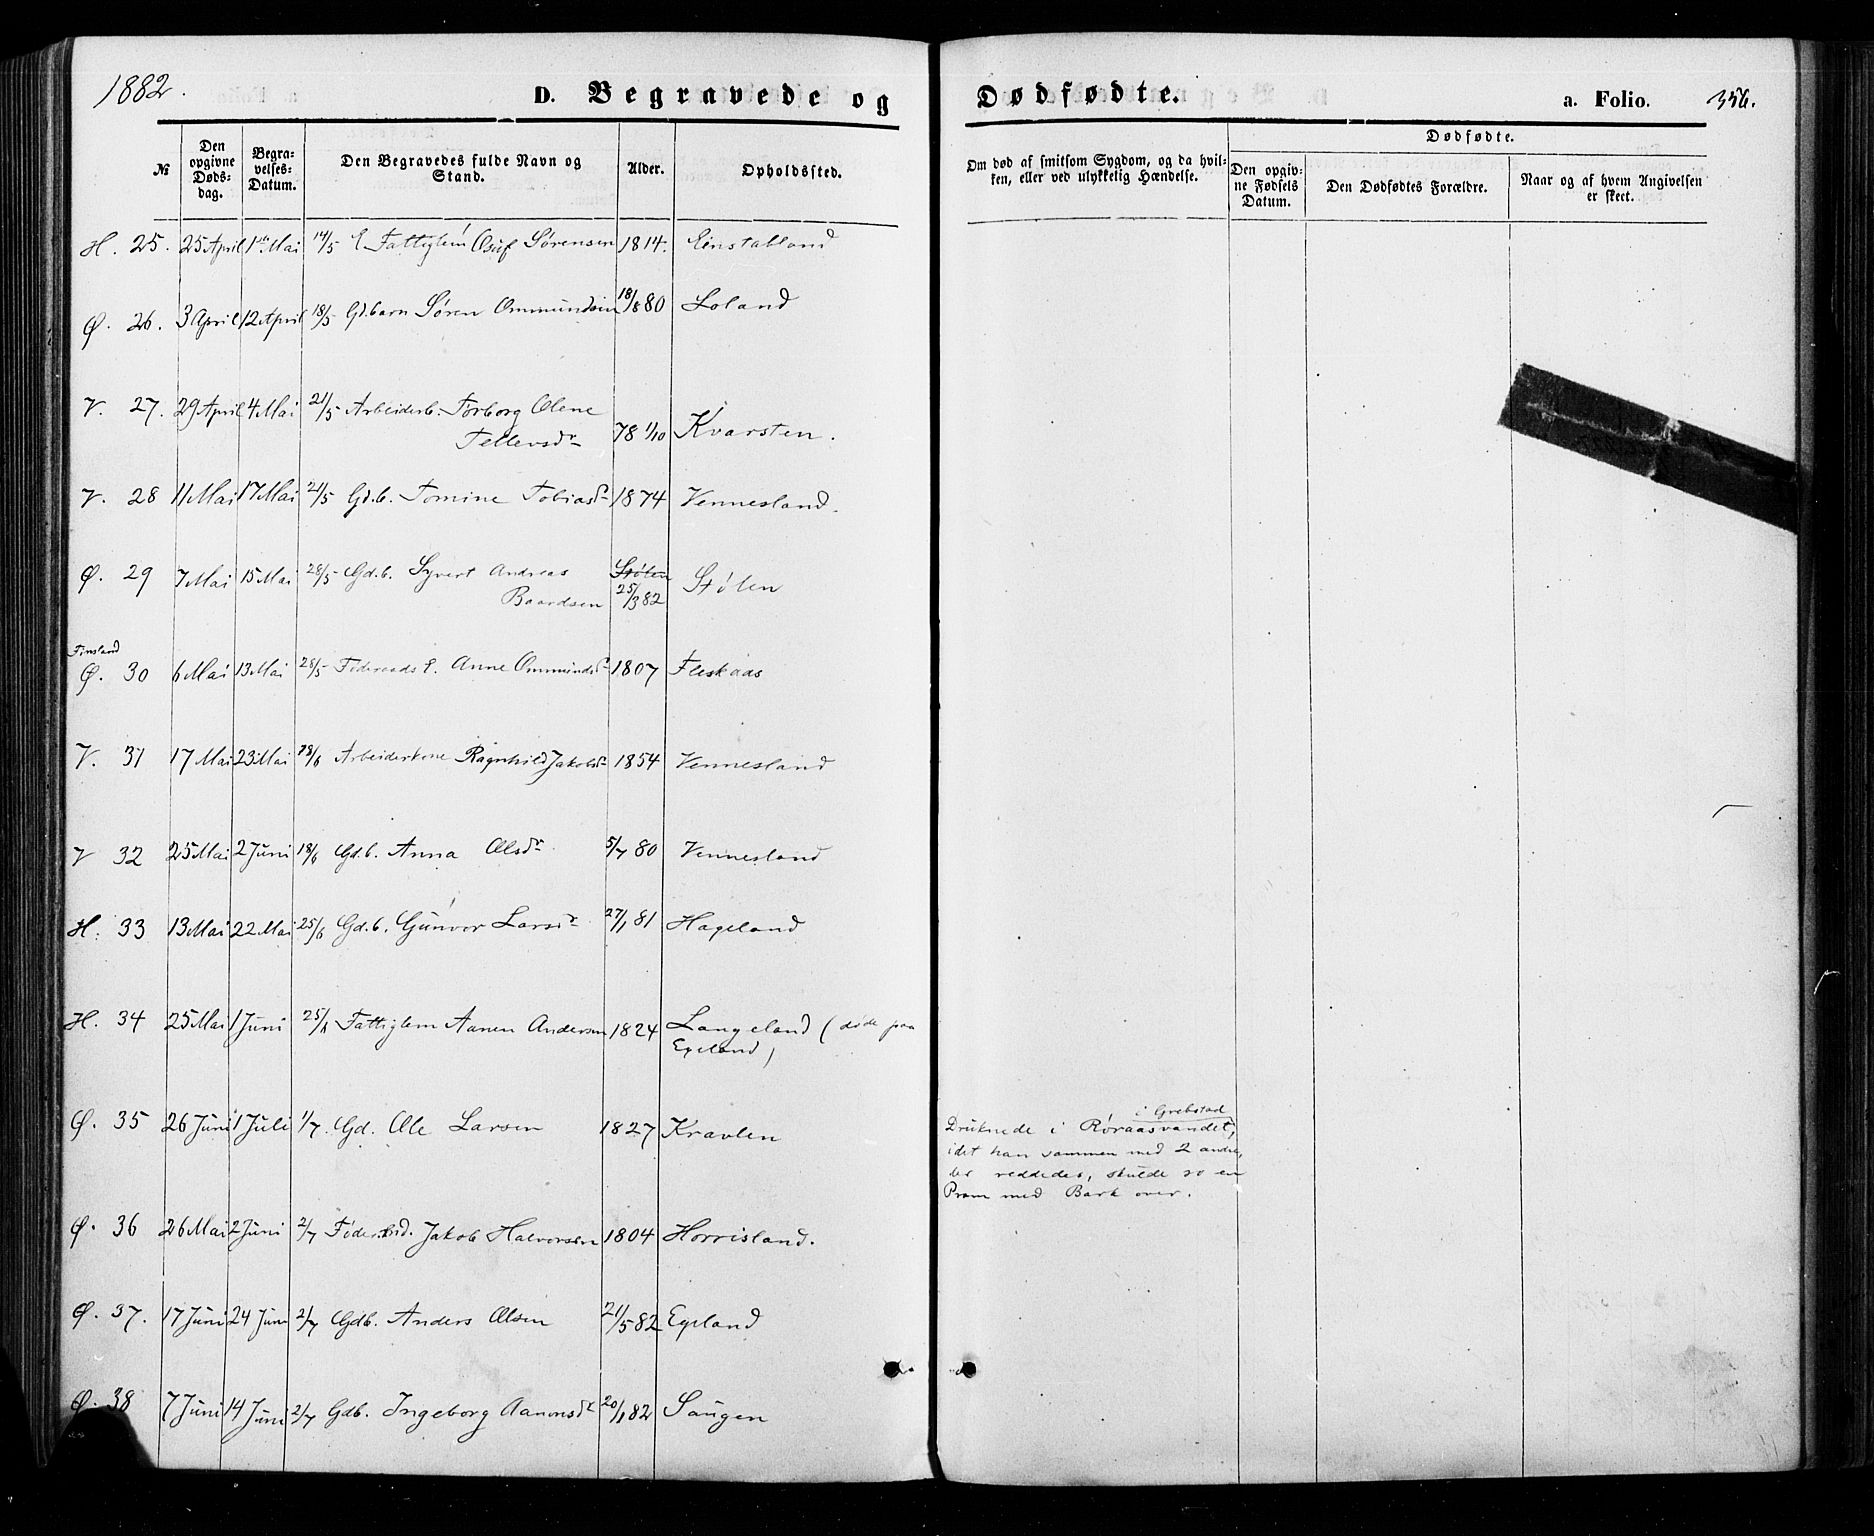 1882.
D. Begravede og
Dødfødte.
a. Folio. 356.
№
Den opgivne Døds-dag.
Begra-velses-Datum.
Den Begravedes fulde Navn og Stand.
Alder.
Opholdssted.
Om død af smitsom Sygdom, og da hvil-ken, eller ved ulykkelig Hændelse.
Dødfødte.
Den opgiv-ne Fødsels Datum.
Den Dødfødtes Forældre.
Naar og af hvem Angivelsen er skeet.
H. 25. 25 April 1ste Mai 14/5 E. Fattiglem Osuf Sørensen 1814. Einstabland
Ø. 26. 3 April 12 April 18/5 Gd.barn Søren Ommundsen 18/8 80 Loland
V. 27. 29 April 4 Mai 21/5 Arbeiderb. Torborg Olene
Tellevsdr 78 1/10 Kvarsten.
V. 28 11 Mai 17 Mai 21/5 Gd.b. Tomine Tobiasdr 1874 Vennesland.
Ø. 29 7 Mai 15 Mai 28/5 Gd.b. Syvert Andreas Stølen
Baardsen 25/3 82 Stølen
Finsland
Ø. 30 6 Mai 13 Mai 28/5 Føderaads E. Anne Ommundsdr 1807 Fleskaas
V. 31 17 Mai 23 Mai 18/6 Arbeiderkone Ragnhild Jakobsdr 1854 Vennesland
V 32 25 Mai 2 Juni 18/6 Gd.b. Anna Olsdr 5/7 80 Vennesland
H. 33 13 Mai 22 Mai 25/6 Gd.b. Gunvor Larsdr 27/1 81 Hageland
H. 34 25 Mai 1 Juni 25/6 Fattiglem Aanen Andersen 1824 Langeland (døde paa
Egeland)
Ø. 35 26 Juni 1 Juli 1/7. Gd. Ole Larsen 1827 Kravlen
i Grebstad
Druknede i Røraasvandet,
idet han sammen med 2 andre,
der reddedes, skulde ro en
Pram med Bark over.
Ø. 36 26 Mai 2 Juni 2/7 Jakob Halvorsen 1804 Horrisland.
Ø. 37. 17 Juni 24 Juni 2/7 Gdb. Anders Olsen 21/5 82 Egeland
Ø. 38 7 Juni 14 Juni 2/7 Gdb. Ingeborg Aanonsdr 20/1 82 Saugen